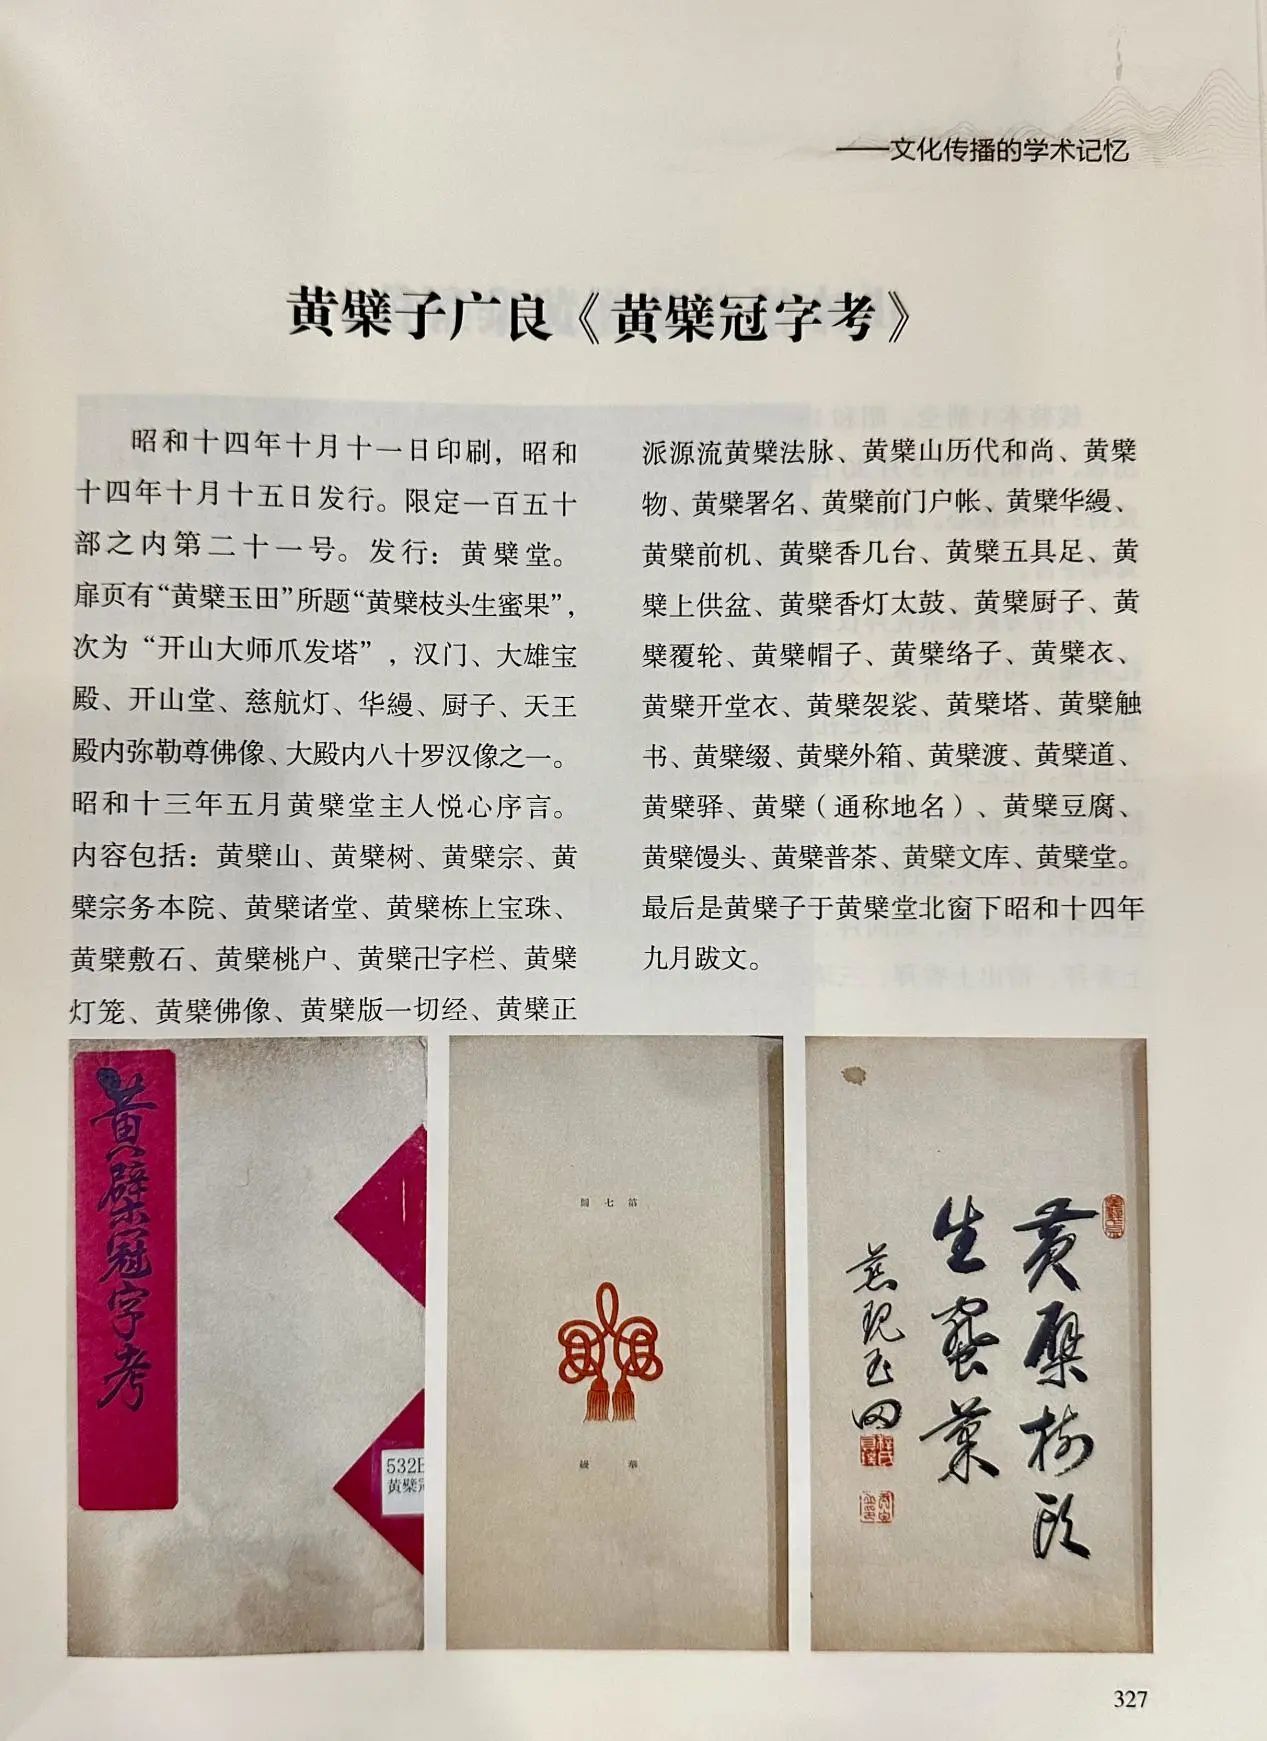 ——文化传播的学术记忆
黄檗子广良《黄檗冠字考》
昭和十四年十月十一日印刷，昭和
十四年十月十五日发行。限定一百五十
部之内第二十一号。发行：黄檗堂。
扉页有“黄檗玉田”所题“黄檗枝头生蜜果”，
次为“开山大师爪发塔”，汉门、大雄宝
殿、开山堂、慈航灯、华縵、厨子、天王
殿内弥勒尊佛像、大殿内八十罗汉像之一。
昭和十三年五月黄檗堂主人悦心序言。
内容包括：黄檗山、黄檗树、黄檗宗、黄
檗宗务本院、黄檗诸堂、黄檗栋上宝珠、
黄檗敷石、黄檗桃户、黄檗卍字栏、黄檗
灯笼、黄檗佛像、黄檗版一切经、黄檗正
派源流黄檗法脉、黄檗山历代和尚、黄檗
物、黄檗署名、黄檗前门户帐、黄檗华縵、
黄檗前机、黄檗香几台、黄檗五具足、黄
檗上供盆、黄檗香灯太鼓、黄檗厨子、黄
檗覆轮、黄檗帽子、黄檗络子、黄檗衣、
黄檗开堂衣、黄檗袈裟、黄檗塔、黄檗触
书、黄檗缀、黄檗外箱、黄檗渡、黄檗道、
黄檗驿、黄檗（通称地名）、黄檗豆腐、
黄檗馒头、黄檗普茶、黄檗文库、黄檗堂。
最后是黄檗子于黄檗堂北窗下昭和十四年
九月跋文。
黄檗冠字考
532
黄檗
圖七第
縵華
黄檗樹頭
生蜜菓
玉田
327